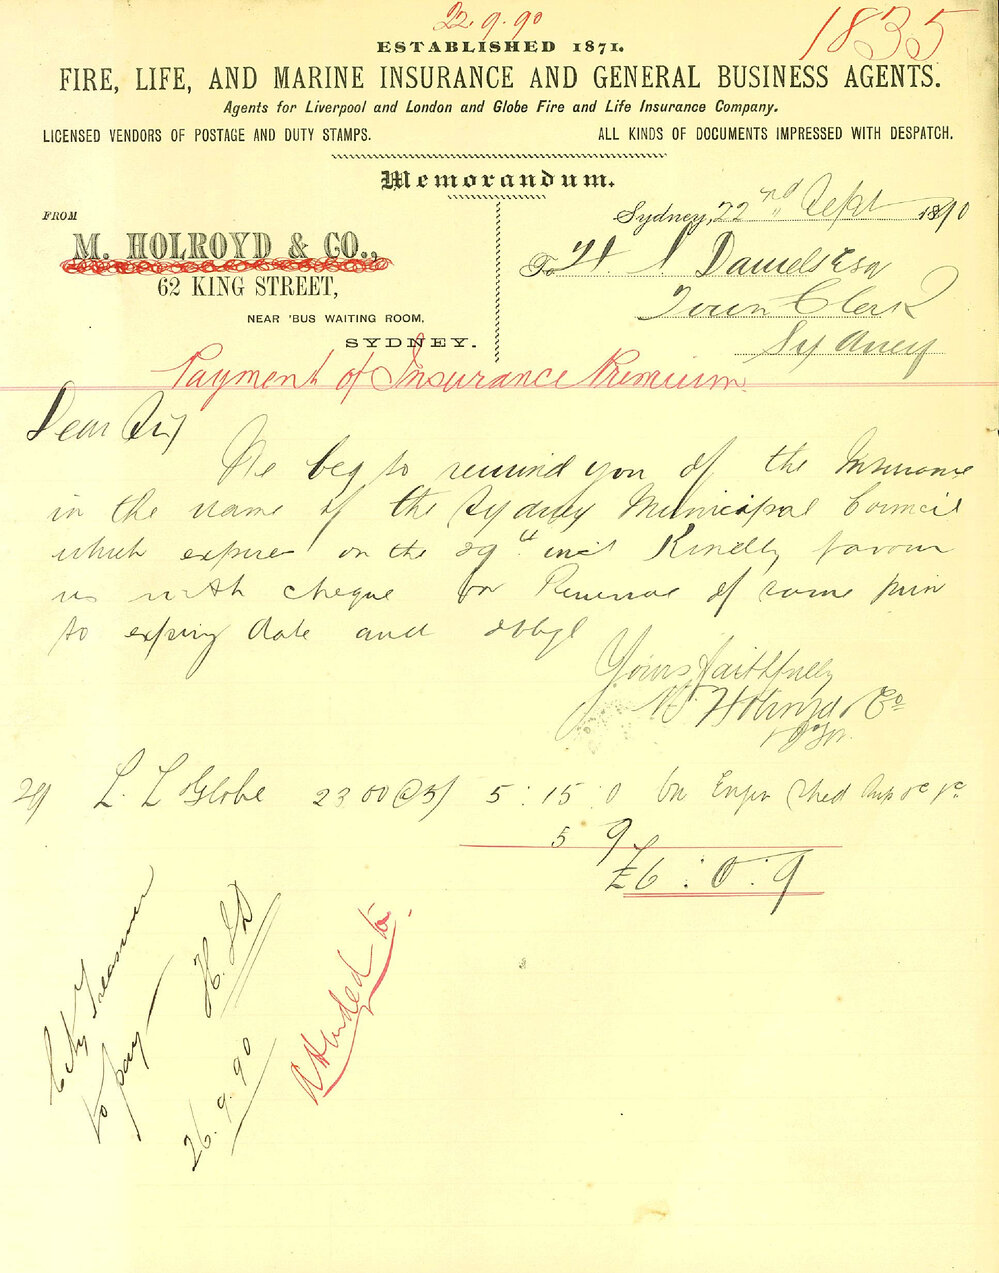 22.9.90
1835
ESTABLISHED 1871.
FIRE, LIFE, AND MARINE INSURANCE AND GENERAL BUSINESS AGENTS.
Agents for Liverpool and London and Globe Fire and Life Insurance Company.
LICENSED VENDORS OF POSTAGE AND DUTY STAMPS.
ALL KINDS OF DOCUMENTS IMPRESSED WITH DESPATCH.
Memorandum.
Sydney, 22nd Sept 1890
FROM
M. HOLROYD & CO.,
62 KING STREET,
NEAR 'BUS WAITING ROOM,
SYDNEY.
To H. J Daniels Esq
Town Clerk
Sydney
Payment of Insurance Premium
Dear Sir
We beg to remind you of the Insurance
in the name of the Sydney Municipal Council
which expires on the 29th inst Kindly favour
us with cheque for Renewal of same prior
to expiring date and oblige
Yours faithfully
M Holroyd & Co
29 L. L & Globe 2300 @ 5/ 5:15:0 on Engin Shed
5 9
£6:0:9
City Treasurer
to pay
H.J.D
26.9.90
Attended to.